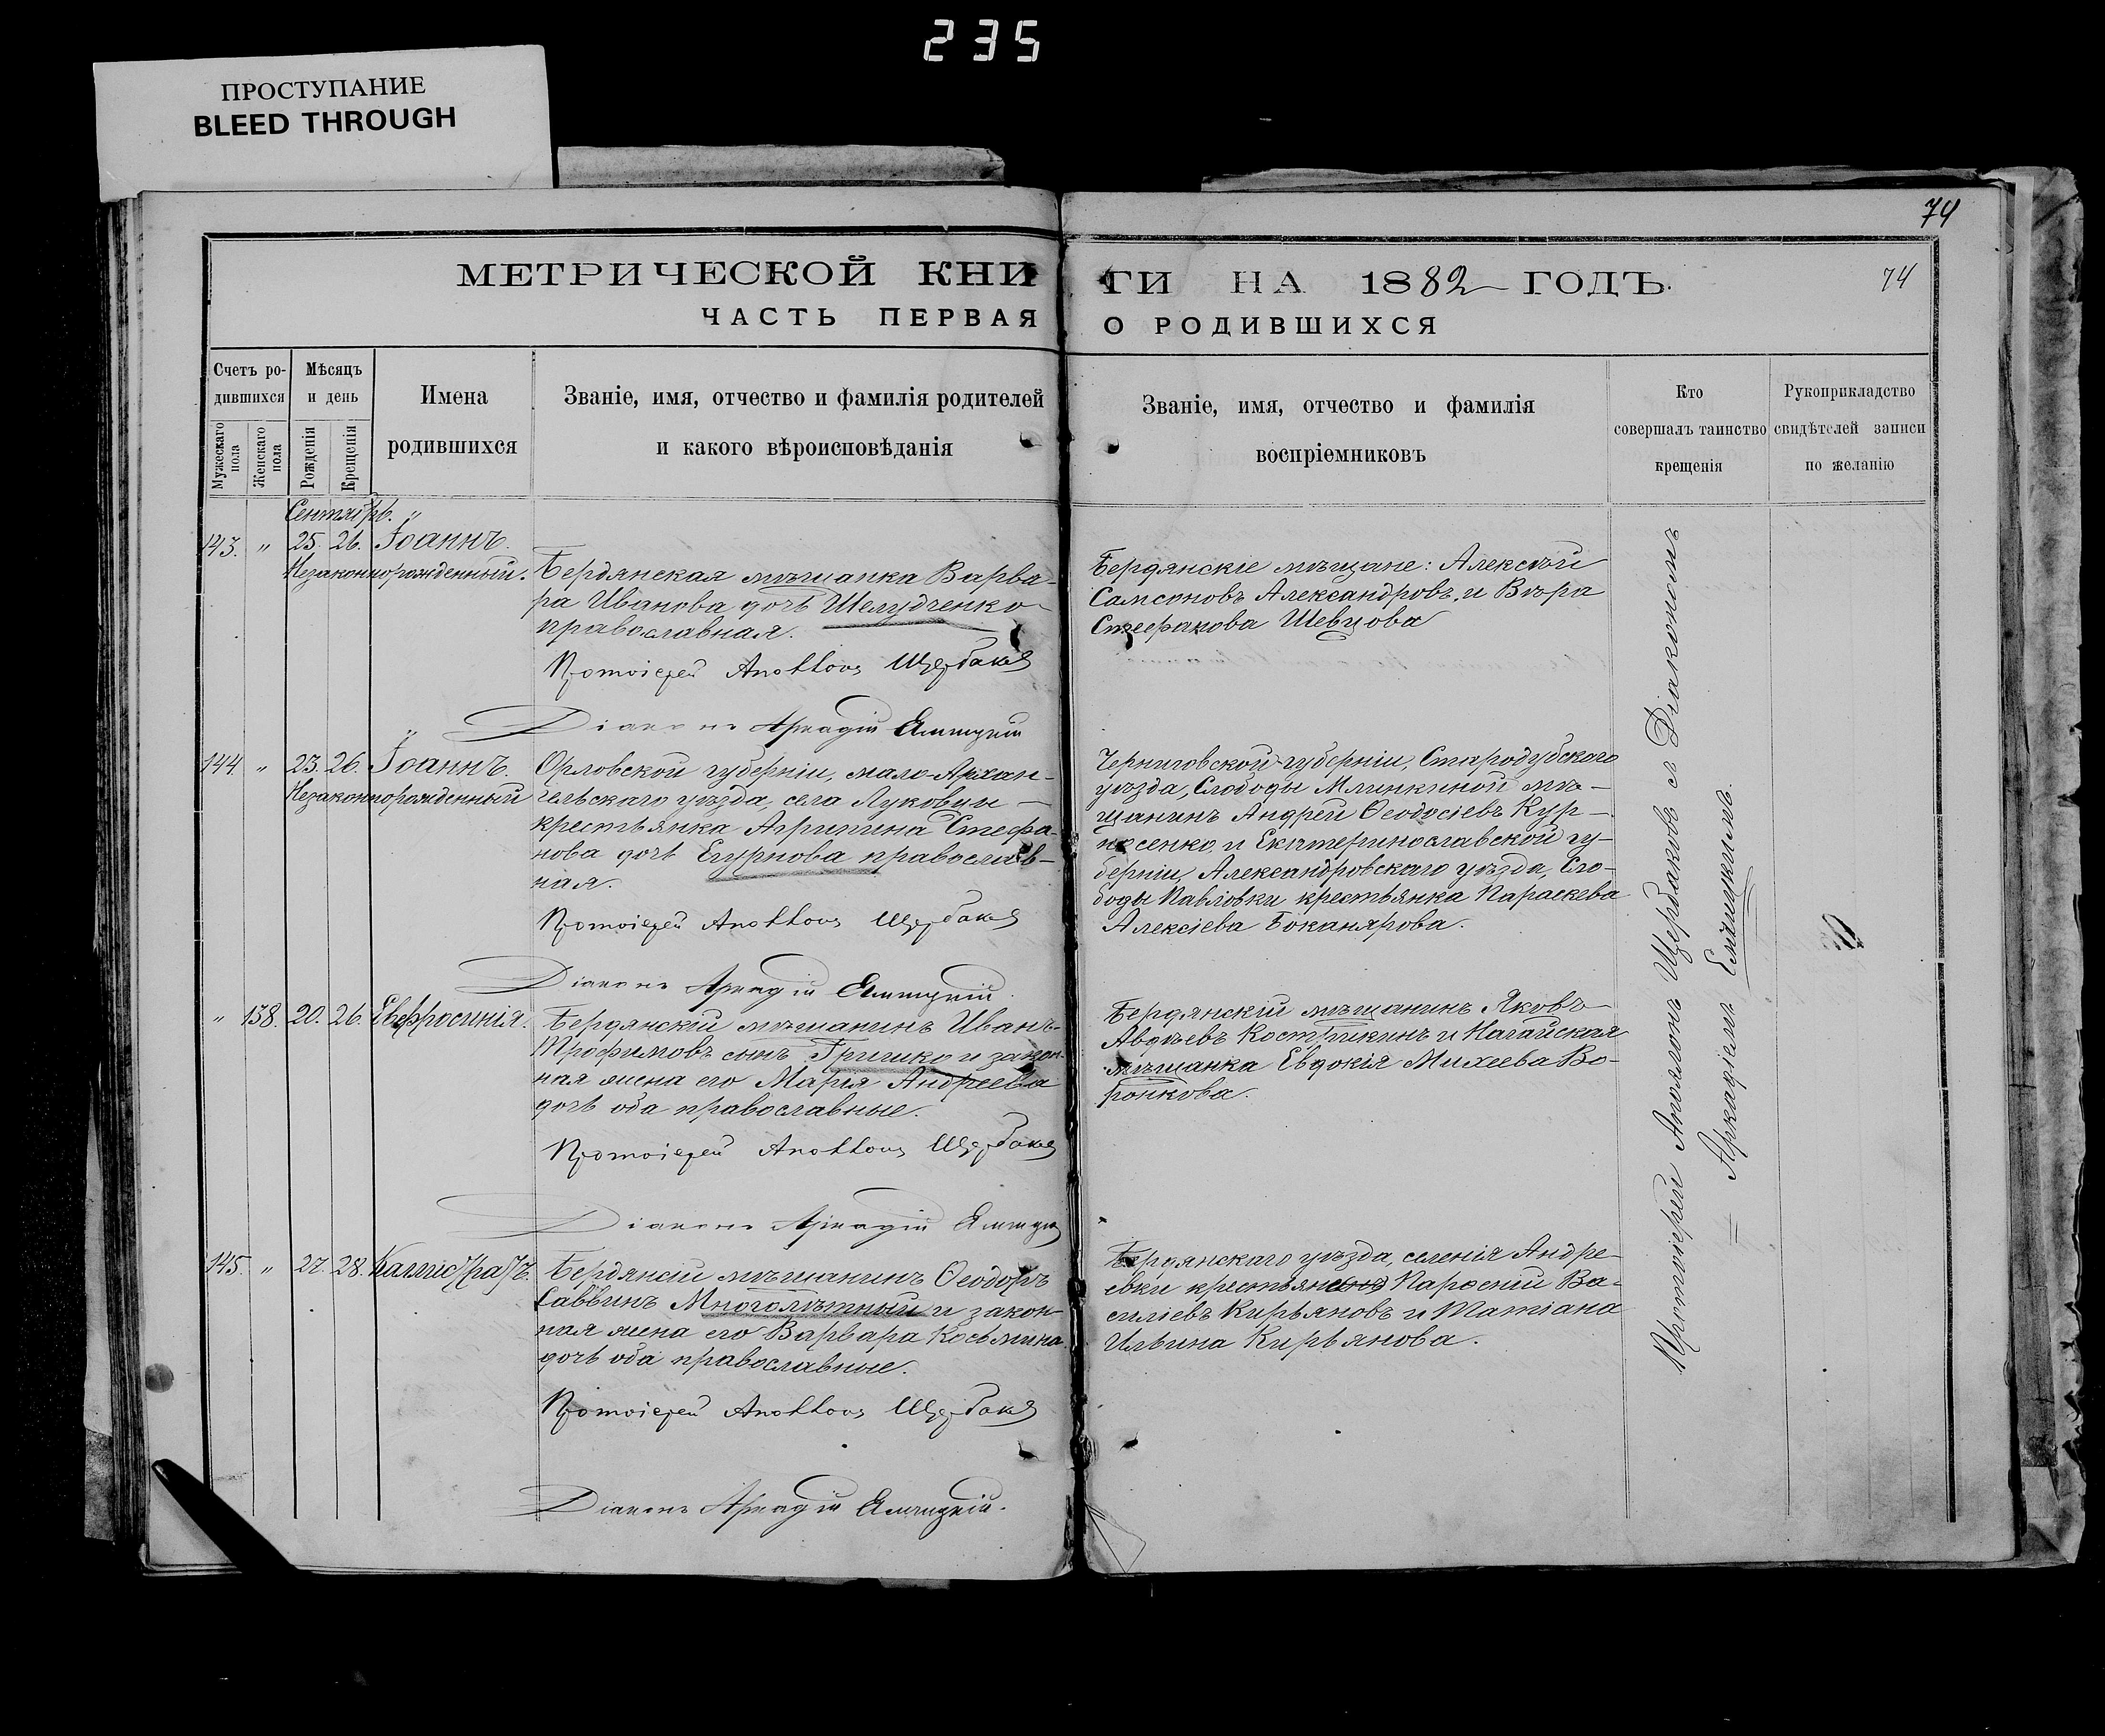 235
ПРОСТУПАНИЕ
BLEED THROUGH
74
МЕТРИЧЕСКОЙ КНИ
ГИ НА 1882 ГОДЪ.
74
ЧАСТЬ ПЕРВАЯ
О РОДИВШИХСЯ
Счетъ ро-
дившихся
Мужескаго пола
Женскаго пола
Мѣсяцъ
и день
Рожденія
Крещенія
Имена
родившихся
Званіе, имя, отчество и фамилія родителей
и какого вѣроисповѣданія
Званіе, имя, отчество и фамилія
воспріемниковъ
Кто
совершалъ таинство
крещенія
Рукоприкладство
свидѣтелей записи
по желанію
Сентябрь.
143. " 25. 26. Іоаннъ.
Незаконнорожденный.
Бердянская мѣщанка Варва-
ра Иванова дочь Шелудченко
православная.
Протоіерей Аполлонъ Щербаковъ
Діаконъ Аркадій Емницкій
Бердянскіе мѣщане: Алексѣй
Самсоновъ Александровъ, и Вѣра
Стефанова Шевцова
144. " 23. 26. Іоаннъ.
Незаконнорожденный
Орловской губерніи, мало-Архан-
гельскаго уѣзда, села Луковцы
крестьянка Агрипина Стефа-
нова дочь Егурнова православ-
ная.
Протоіерей Аполлонъ Щербаковъ
Діаконъ Аркадій Емницкій
Черниговской губерніи, Стародубскаго
уѣзда, Слободы Млинкиной мѣ-
щанинъ Андрей Ѳеодосіевъ Кур-
носенко и Екатеринославской гу-
берніи, Александровскаго уѣзда, Сло-
боды Павловки крестьянка Параскева
Алексіева Боканярова.
" 138. 20. 26. Евфросинія.
Бердянскій мѣщанинъ Иванъ
Трофимовъ сынъ Гришко и закон-
ная жена его Марія Андреева
дочь оба православные.
Протоіерей Аполлонъ Щербаковъ
Діаконъ Аркадій
Бердянскій мѣщанинъ Яковъ
Авдѣевъ Кострикинъ и Нагайская
мѣщанка Евдокія Михеева Во-
ронкова.
145. " 27. 28. Каллистратъ.
Бердянсій мѣщанинъ Ѳеодоръ
Саввинъ Многолѣтный и закон-
ная жена его Варвара Косьмина
дочь оба православные.
Протоіерей Аполлонъ Щербаковъ
Діаконъ Аркадій Емницкій.
Бердянскаго уѣзда, селенія Андре-
евки Ва-
силіевъ Кирьяновъ и Татіана
Ильина Кирьянова.
Протоіерей Аполлонъ Щербаковъ с Діакономъ
Аркадіемъ Емницкимъ.